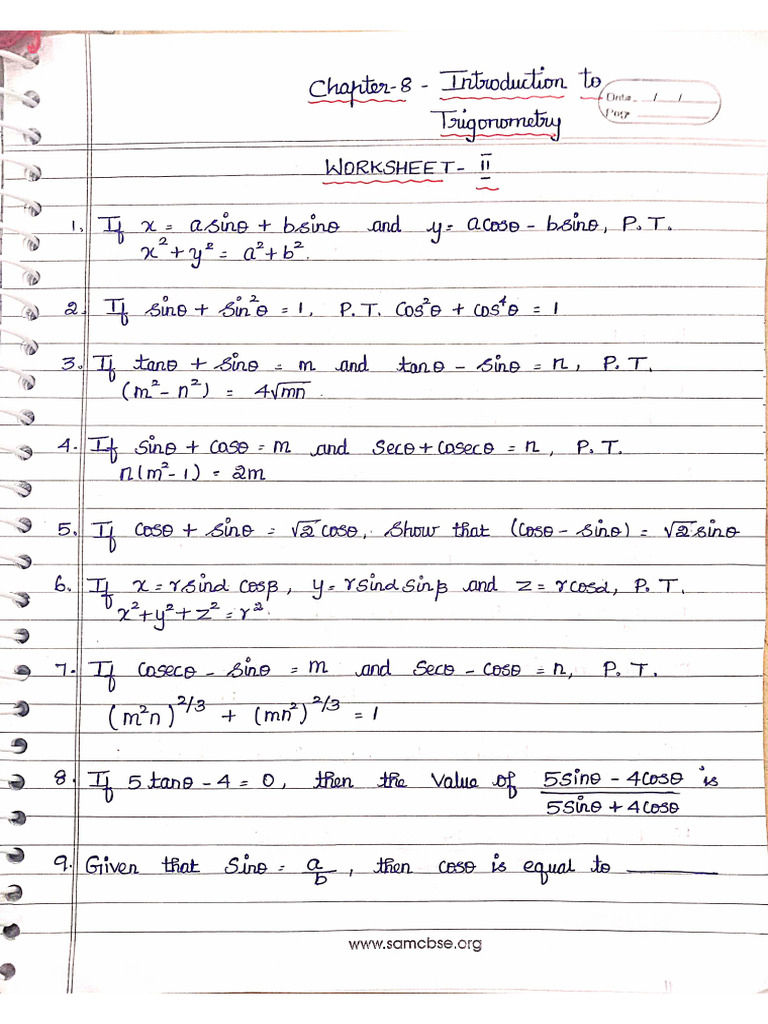 Chapter-8 - Introduction to
Date / /
Page
Trigonometry
WORKSHEET- II
1. If x = asinθ + bsinθ and y= acosθ - bsinθ, P.T.
x²+y² = a²+b².
2. If sinθ + sin²θ = 1, P.T. Cos²θ + cos⁴θ = 1
3. If tanθ + sinθ = m and tanθ - sinθ = n, P.T.
(m²-n²) = 4√mn.
4. If sinθ + cosθ = m and secθ+cosecθ = n, P.T.
n(m²-1) = 2m
5. If cosθ + sinθ = √2 cosθ, show that (cosθ - sinθ) = √2 sinθ
6. If x=rsinα cosβ, y=rsinα sinβ and z=rcosα, P.T.
x²+y²+z²=r².
7. If cosecθ - sinθ = m and secθ - cosθ = n, P.T.
(m²n)^2/3 + (mn²)^2/3 = 1
8. If 5 tanθ - 4 = 0, then the value of 5sinθ - 4cosθ is
5sinθ + 4cosθ
9. Given that Sinθ = a/b, then cosθ is equal to ______
www.samcbse.org